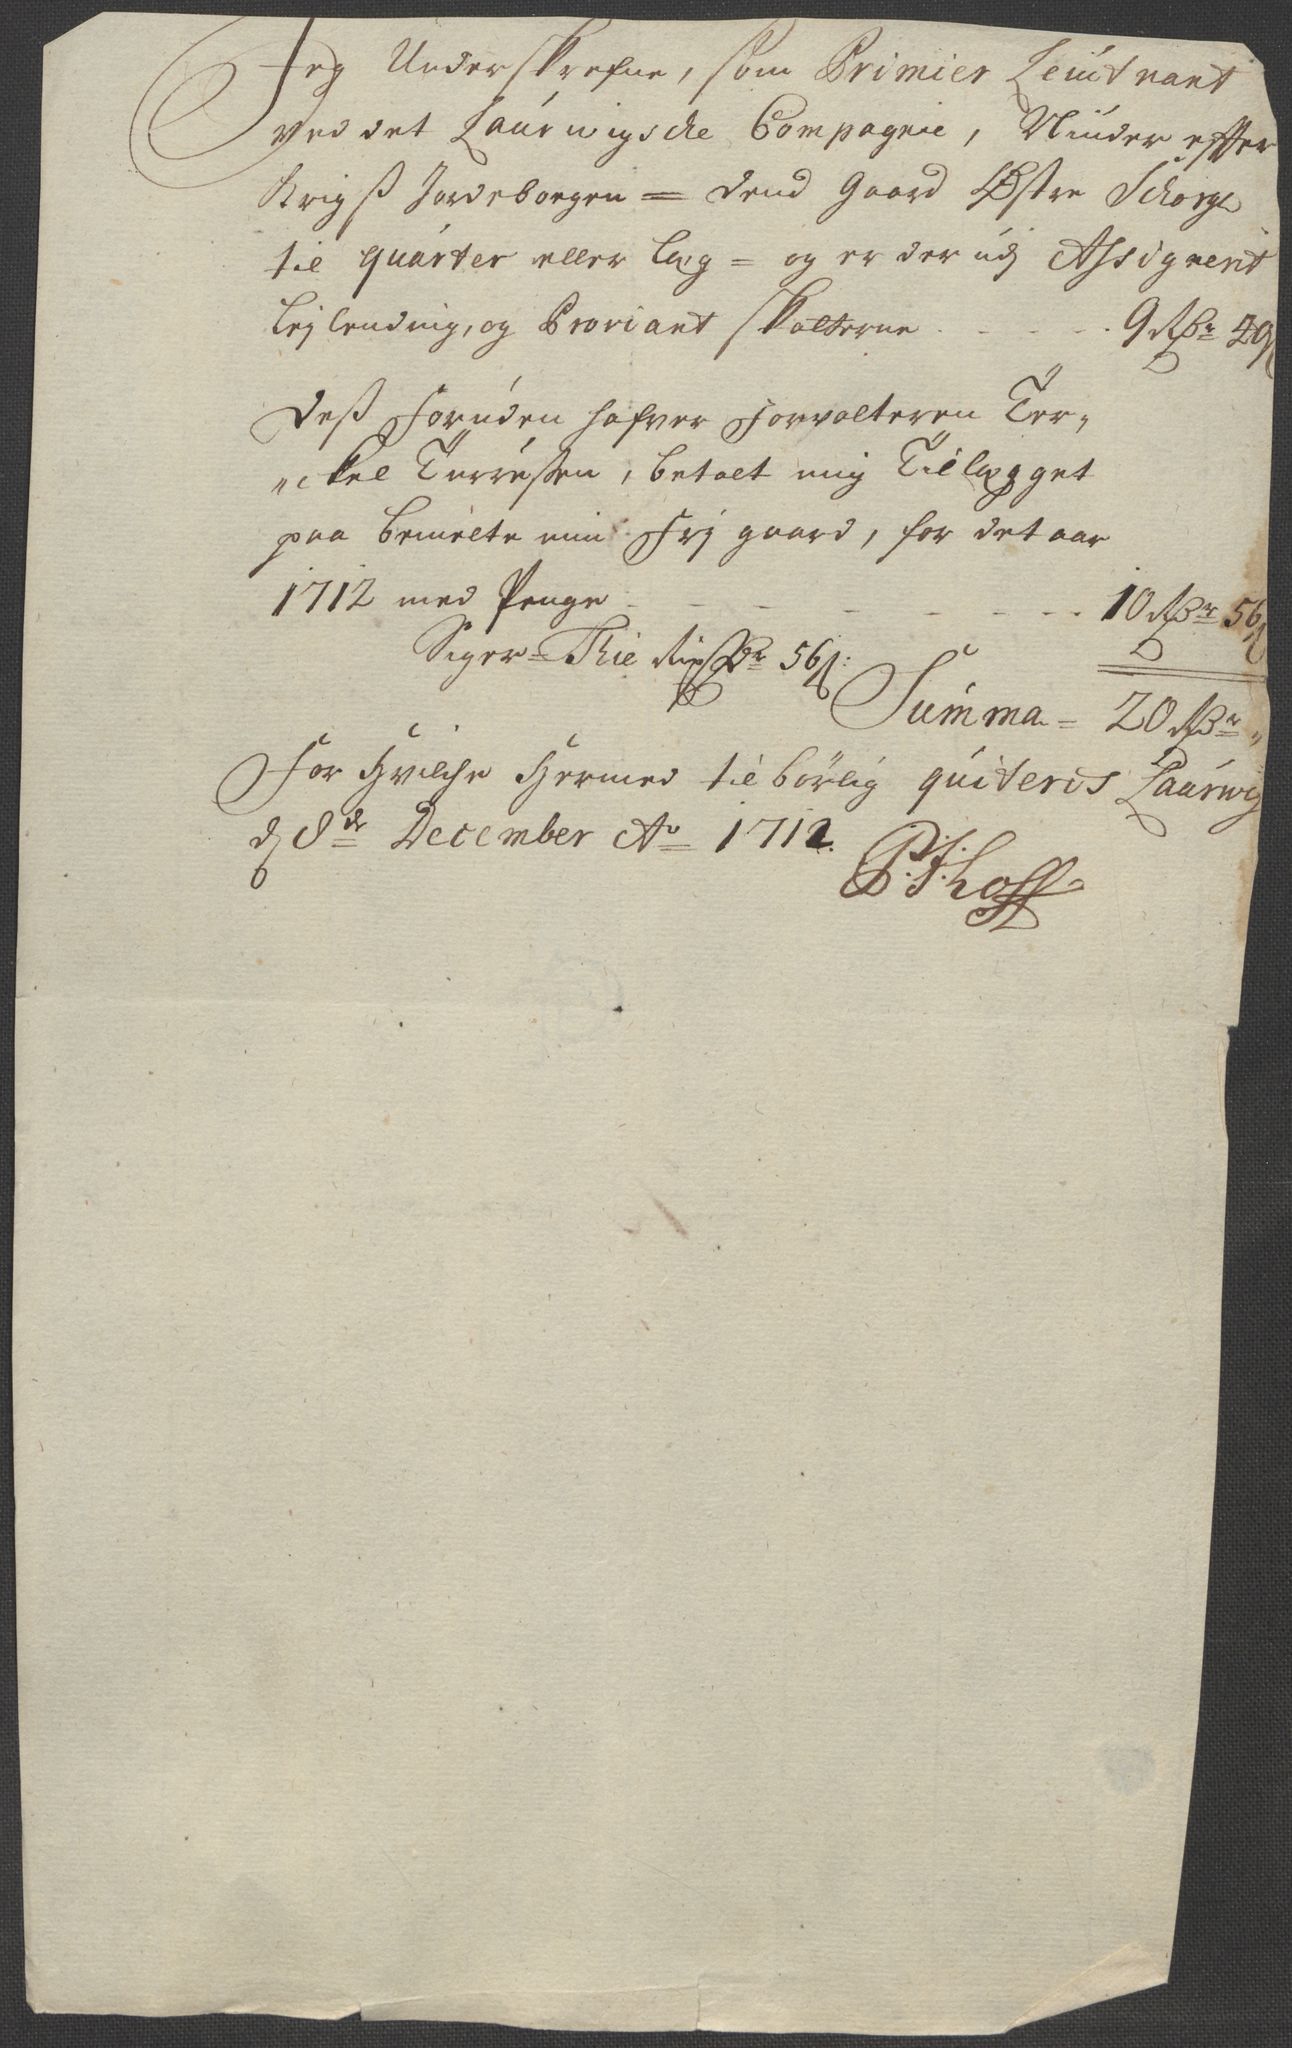 Jeg Underskrefne, som Primier Leutnant
ved det Laurwigsche Compagnie, Niuder effter
Krigß Jordebogen = dend Gaard Østre Schorge
til quarter eller læg = og er der udj Assignerit
Leylending, og Proviant Skatterne - - - - - 9 Rdr 40 s
Deß foruden hafver Forvalteren Ter-
-ckel Terreßen, betalt mig Tillægget
paa bemelte min Frj gaard, for det aar
1712 med Penge - - - - - - - - 10 Rdr 56 s
Siger = Thie Rixdr 56 s:
Summa = 20 Rdr "
For Hvilche Hermed tilbørlig quiteris Laurwig
d 8de December Ao 1712.
P: J: Hoff